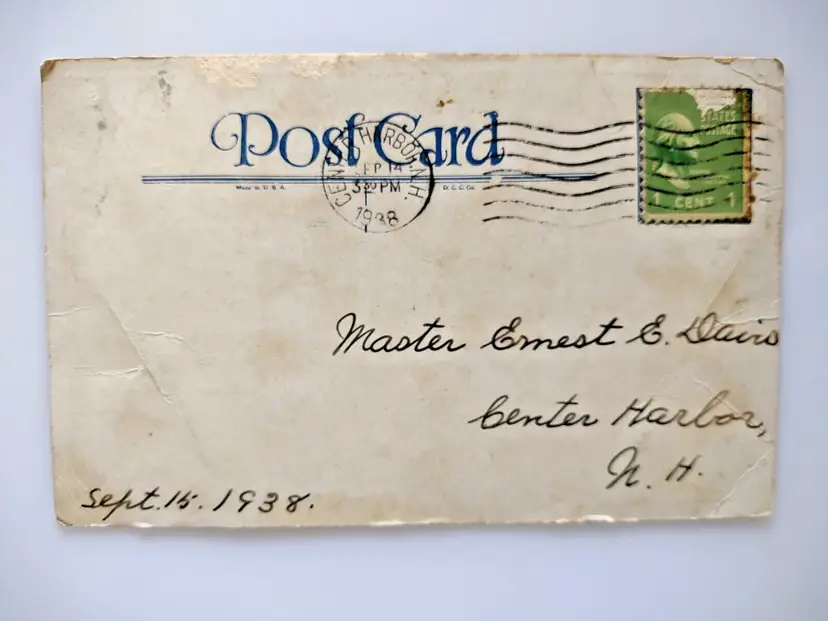 Post Card
MADE IN U.S.A.
D.C.C.Co.
CENTER HARBOR, N.H.
SEP 14
3 30 PM
1938
STATES
POSTAGE
1 CENT 1
Master Ernest E. Davis
Center Harbor,
N. H.
Sept. 15. 1938.